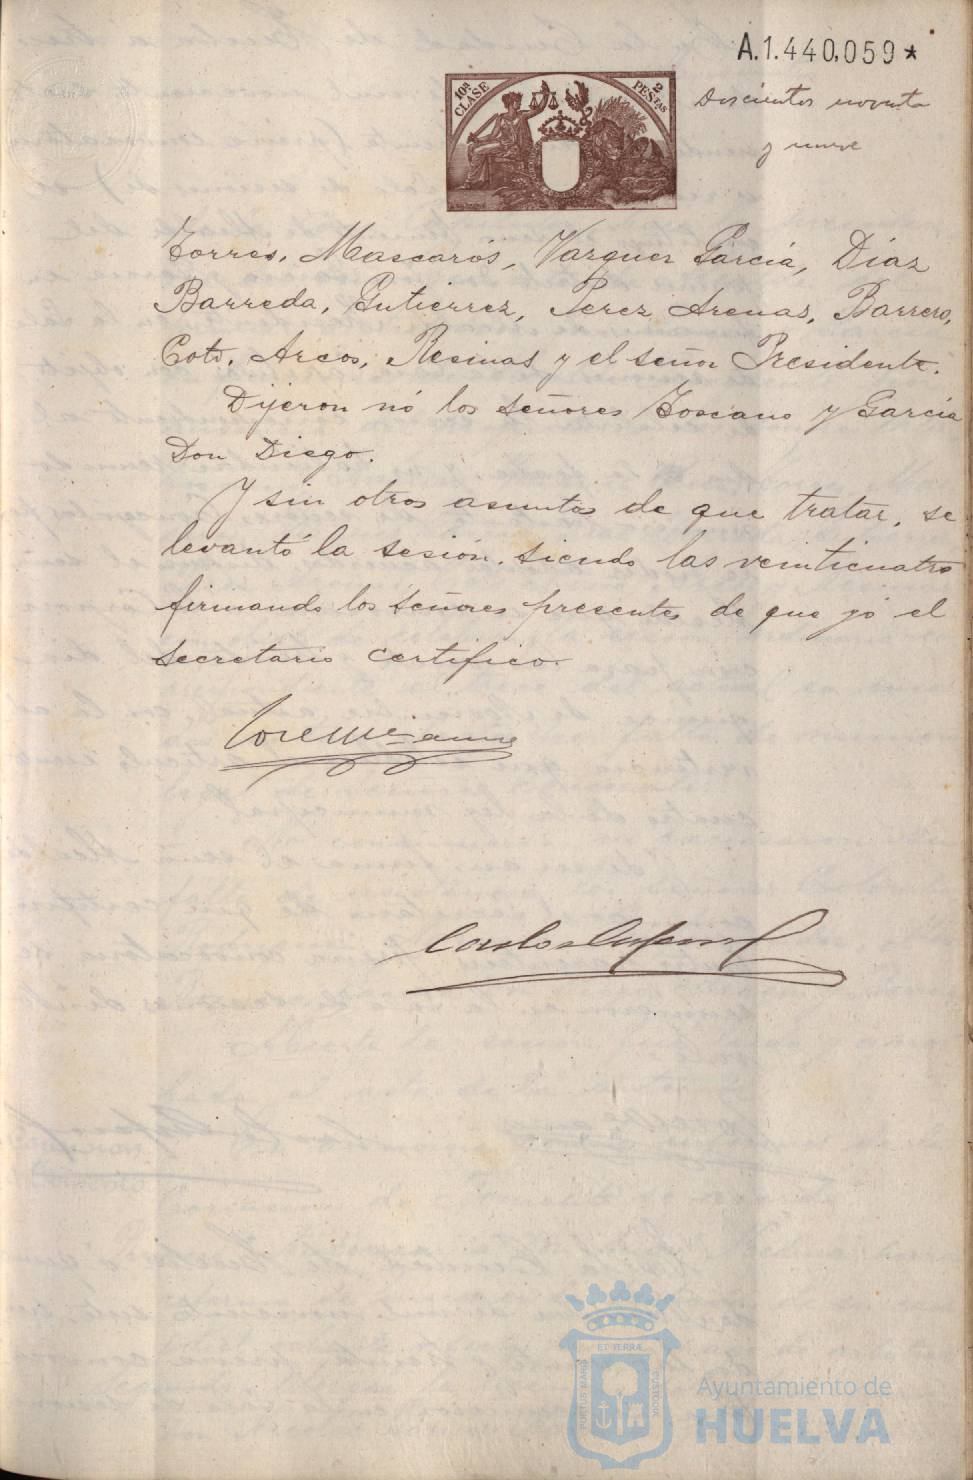 A.1.440,059*
10ª CLASE
2 PESTAS
Doscientos noventa
y nueve
Torres, Mascarós, Vazquez García, Díaz
Barreda, Gutierrez, Perez Arenas, Barrero,
Coto, Arcos, Resinas y el señor Presidente.
Dijeron nó los señores Toscano y García
Don Diego.
Y sin otros asuntos de que tratar, se
levantó la sesión, siendo las veinticuatro
firmando los señores presentes de que yó el
secretario certifico.
PORTUS MARIS
ET TERRÆ
CUSTODIA
Ayuntamiento de
HUELVA